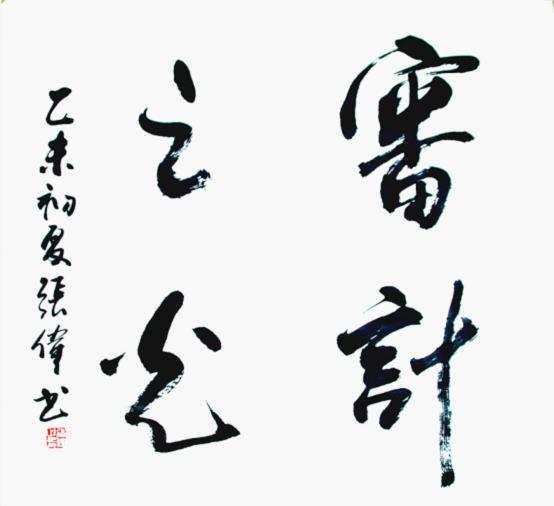 審計
之光
乙未初夏張偉書